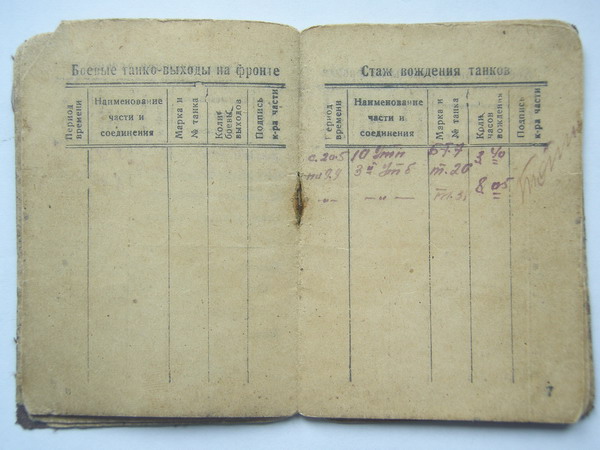 Боевые танко-выходы на фронте
Период времени
Наименование части и соединения
Марка и № танка
Колич боевы выходов
Подпись к-ра части
Стаж вождения танков
Период времени
Наименование части и соединения
Марка и № танка
Кол. часов вождения
Подпись к-ра части
с 20-5 10 УТП БТ-7 3 40
3й УТБ т. 26
8 05
-„- -„-
7